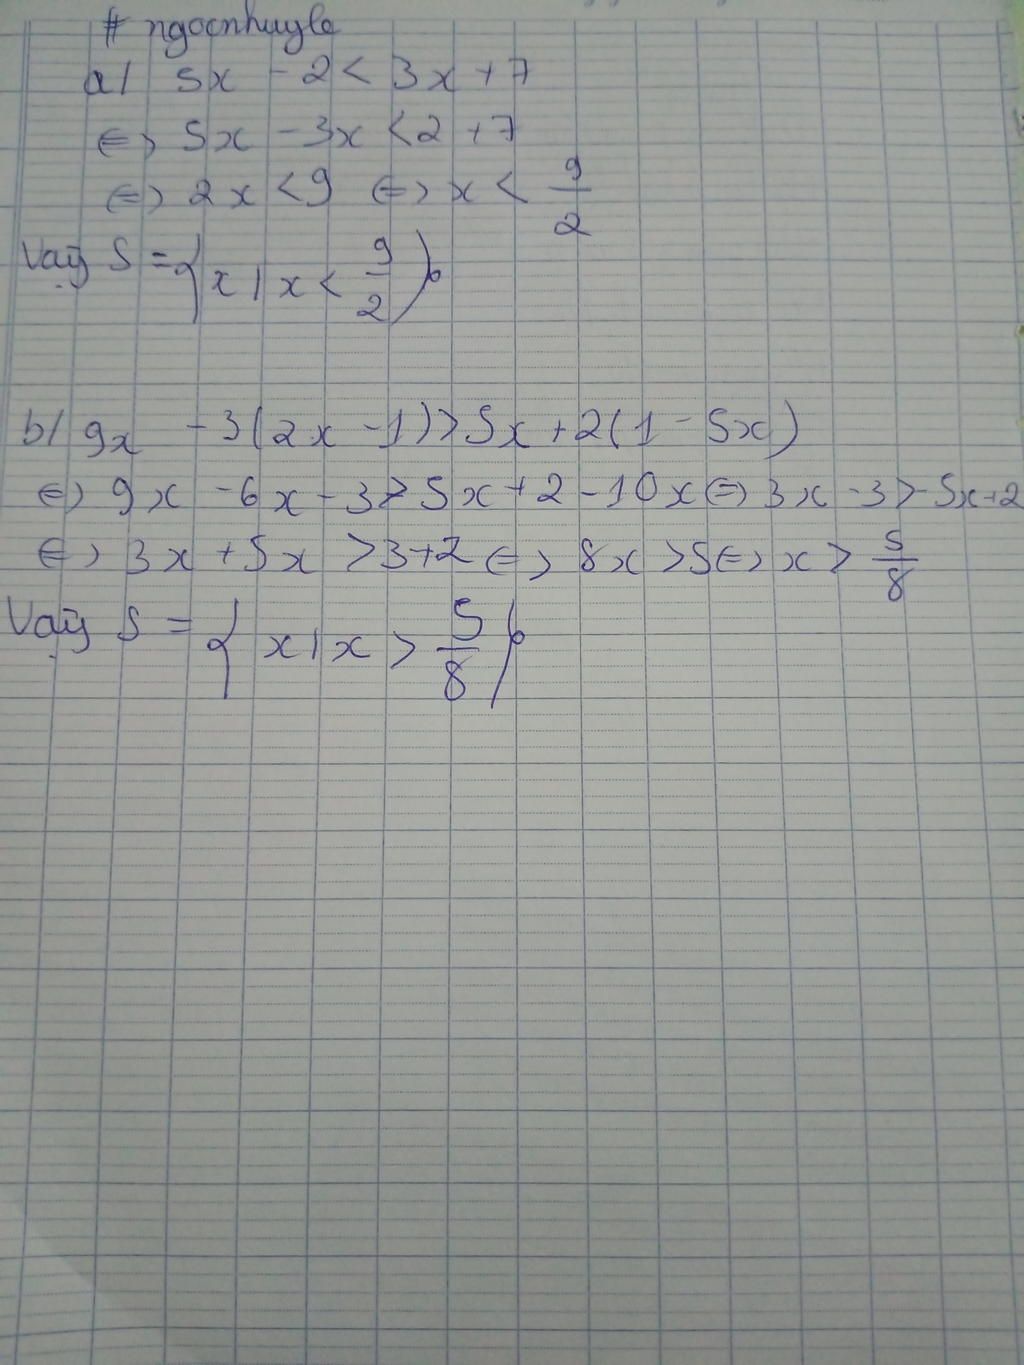 # ngocnhuyle
a/ 5x - 2 < 3x + 7
⇔ 5x - 3x < 2 + 7
⇔ 2x < 9 ⇔ x < 9/2
Vậy S = {x | x < 9/2}
b/ 9x - 3(2x - 1) > 5x + 2(1 - 5x)
⇔ 9x - 6x - 3 > 5x + 2 - 10x ⇔ 3x - 3 > -5x + 2
⇔ 3x + 5x > 3 + 2 ⇔ 8x > 5 ⇔ x > 5/8
Vậy S = {x | x > 5/8}